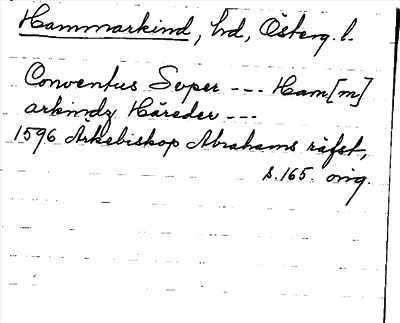 Hammarkind, hd, Österg. l.
Conventus Super --- Ham[m]
arkindz Häreder ---
1596 Ärkebiskop Abrahams räfst,
s. 165. orig.